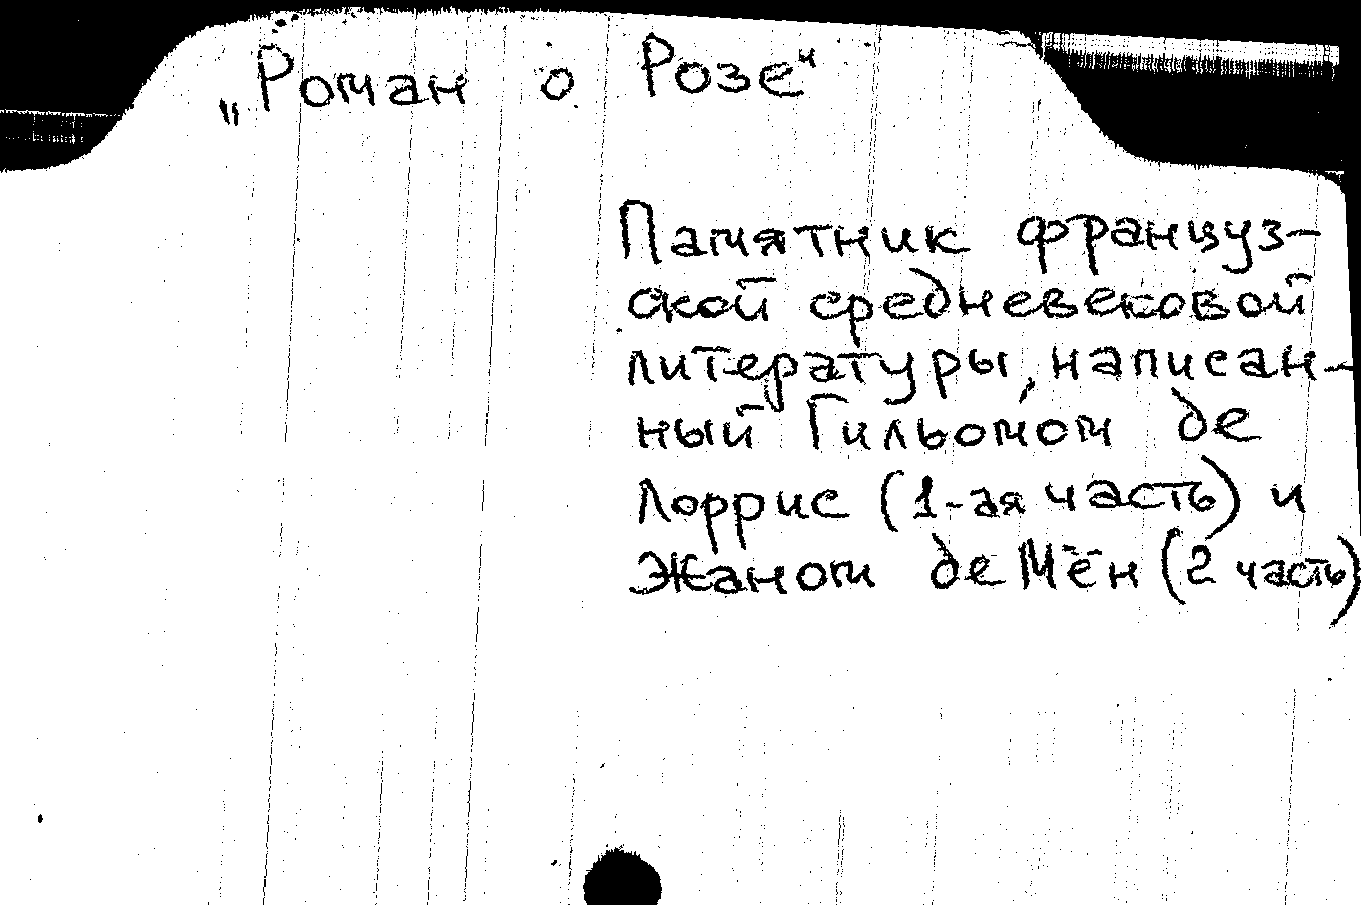 „Роман о Розе"
Памятник француз-
ской средневековой
литературы, написан-
ный Гильомом де
Лоррис (1-ая часть) и
Жаном де Мён (2 часть)